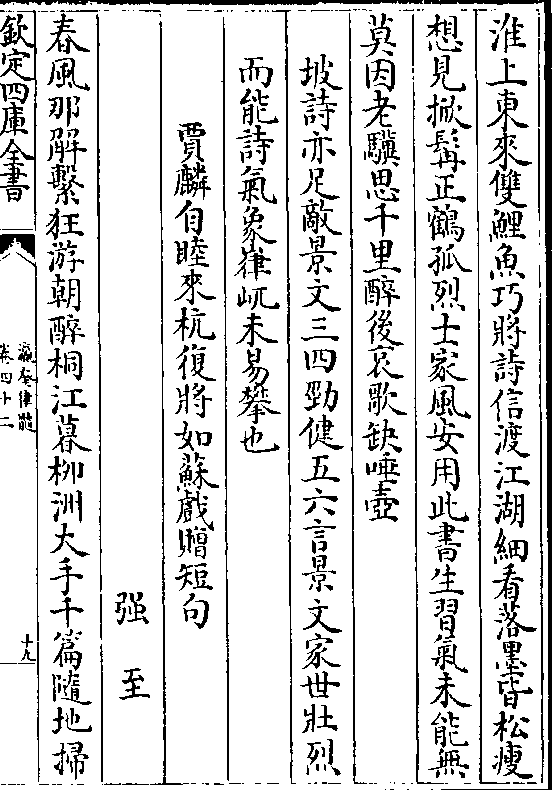 淮上東來雙鯉魚巧將詩信渡江湖細看落墨皆松瘦
想見掀髯正鶴孤烈士家風安用此書生習氣未能無
莫因老驥思千里醉後哀歌缺唾壺
坡詩亦足敵景文三四勁健五六言景文家世壯烈
而能詩氣象嵂屼未易攀也
賈麟自睦來杭復將如蘇戲贈短句
强至
春風那解繫狂游朝醉桐江暮栁洲大手千篇隨地掃
欽定四庫全書
瀛奎律髓
卷四十二
十九